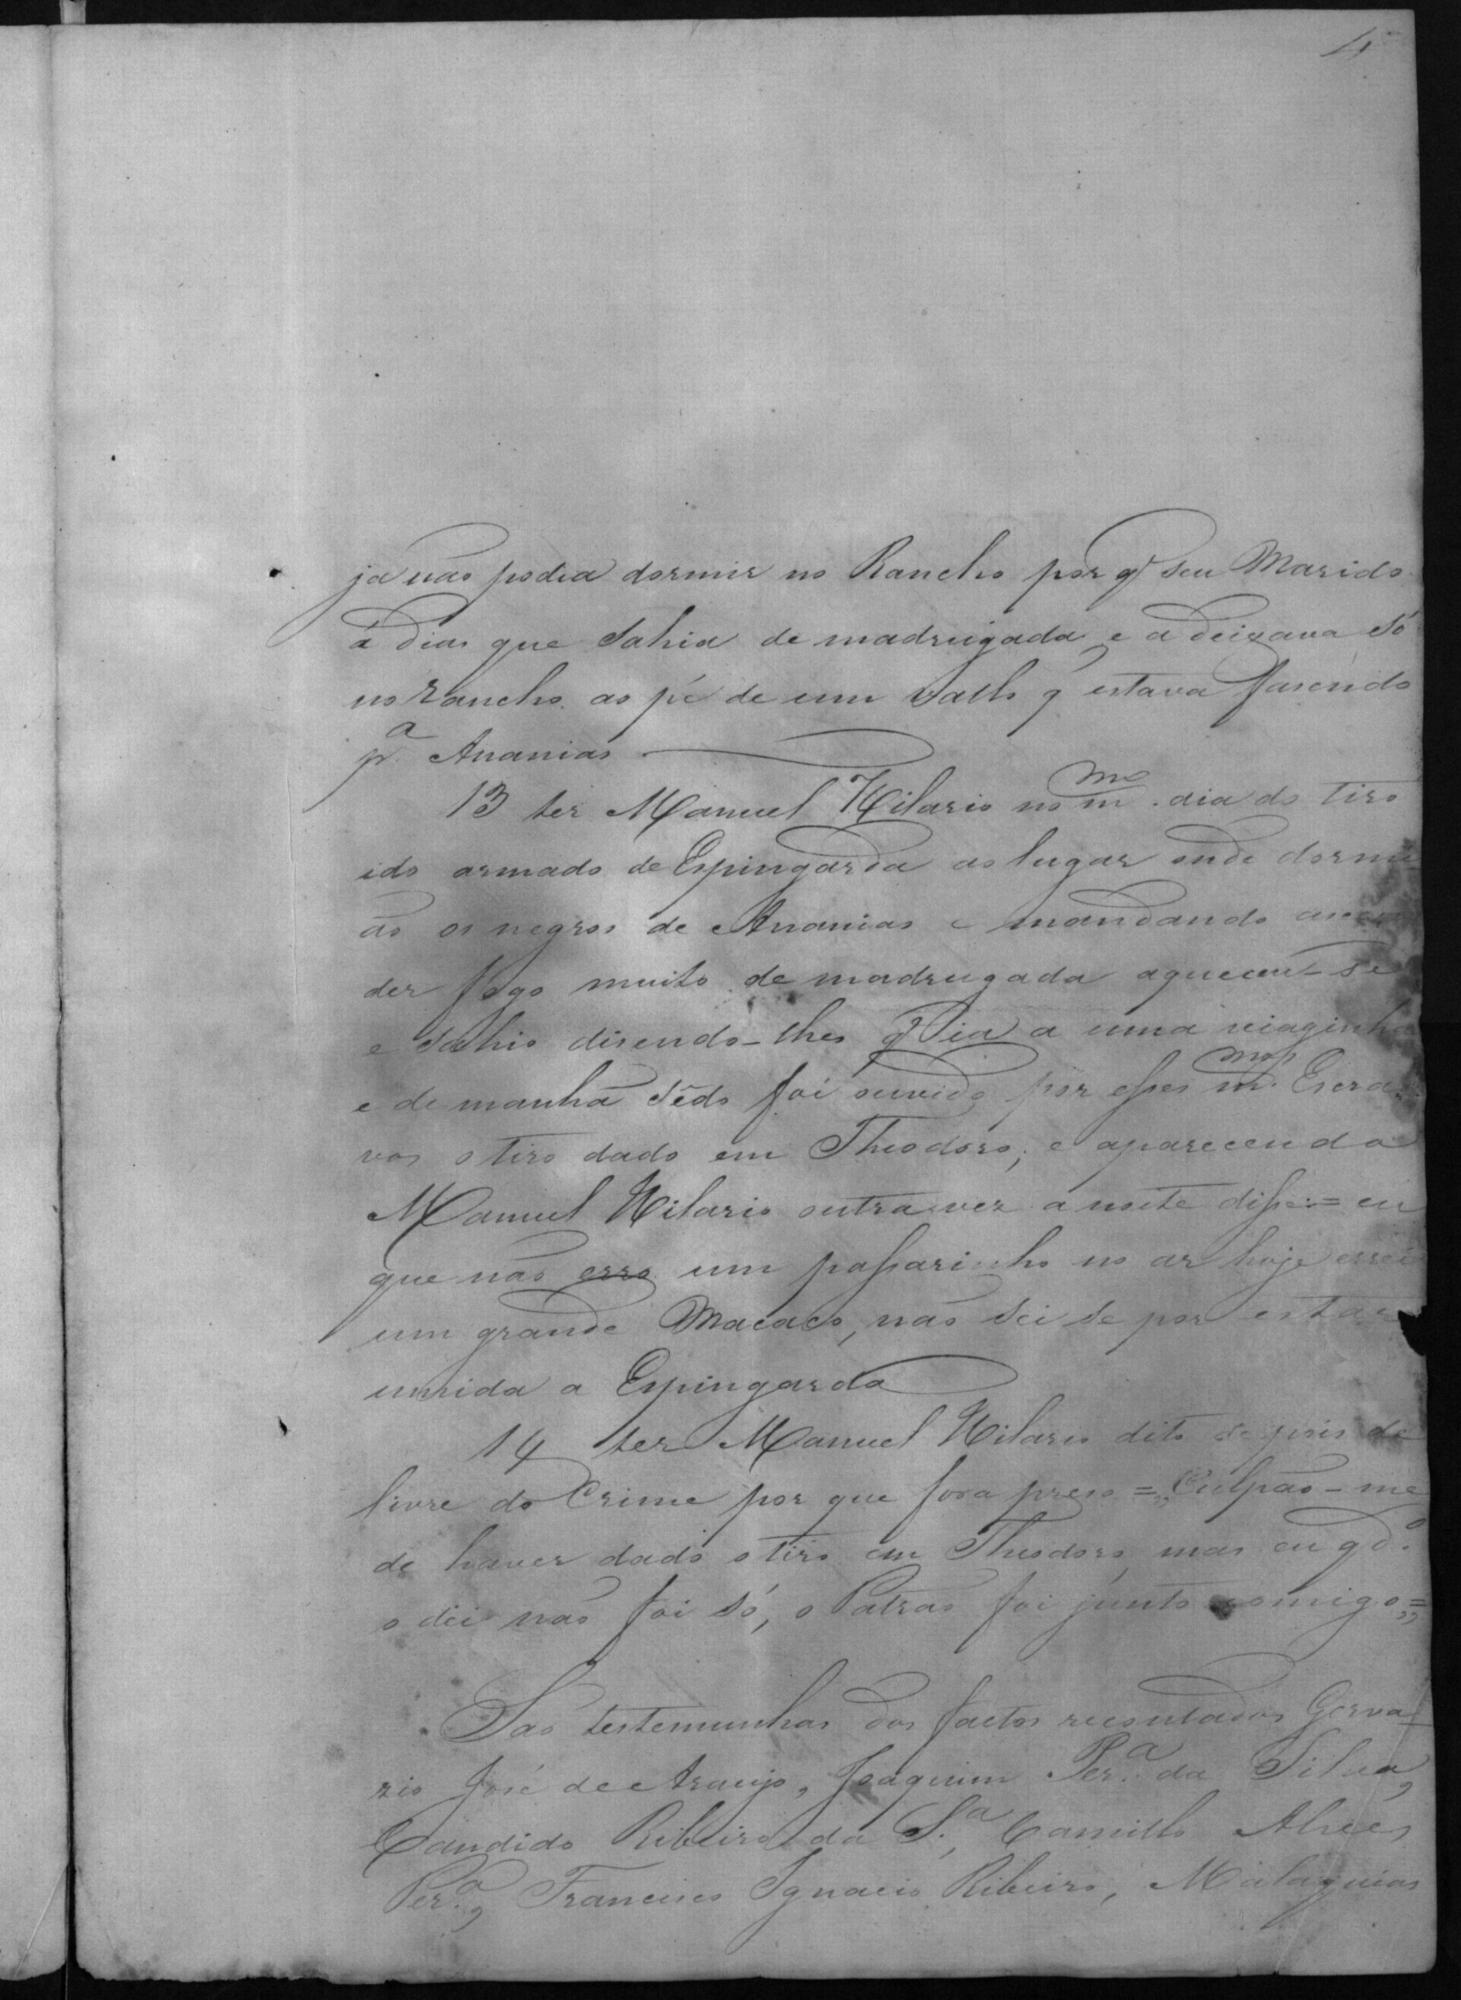 4
ja não podia dormir no Rancho por q' seu Marido
á dias que sahia de madrugada, e a deixava só
no rancho ao pé de um vallo q' estava fasendo
pª Ananias
13 ter Manuel Hilario no m.mo dia do tiro
ido armado de Espingarda ao lugar onde dormi
ão os negros de Ananias e mandando ascen
der fogo muito de madrugada aqueceu-se
e sahio disendo-lhes q' ia a uma viaginha
e de manhã sêdo foi ouvido por esses m.mos Escra
vos o tiro dado em Theodoro; e aparecendo
Manuel Hilario outra vez a noite disse:= eu
que não erro um passarinho no ar hoje errei
um grande Macaco, não sei se por estar
umida a Espingarda
14 ter Manuel Hilario dito depois de
livre do Crime por que fora preso =,, Culpão-me
de haver dado o tiro em Theodoro, mas eu qd.o
o dei não foi só, o Patrão foi junto comigo,,=
São testemunhas dos factos recontados Gerva
zio José de Araujo, Joaquim Per.ª da Silva,
Candido Ribeiro da S.ª, Camillo Alves
Per.ª, Francisco Ignacio Ribeiro, Malaquias